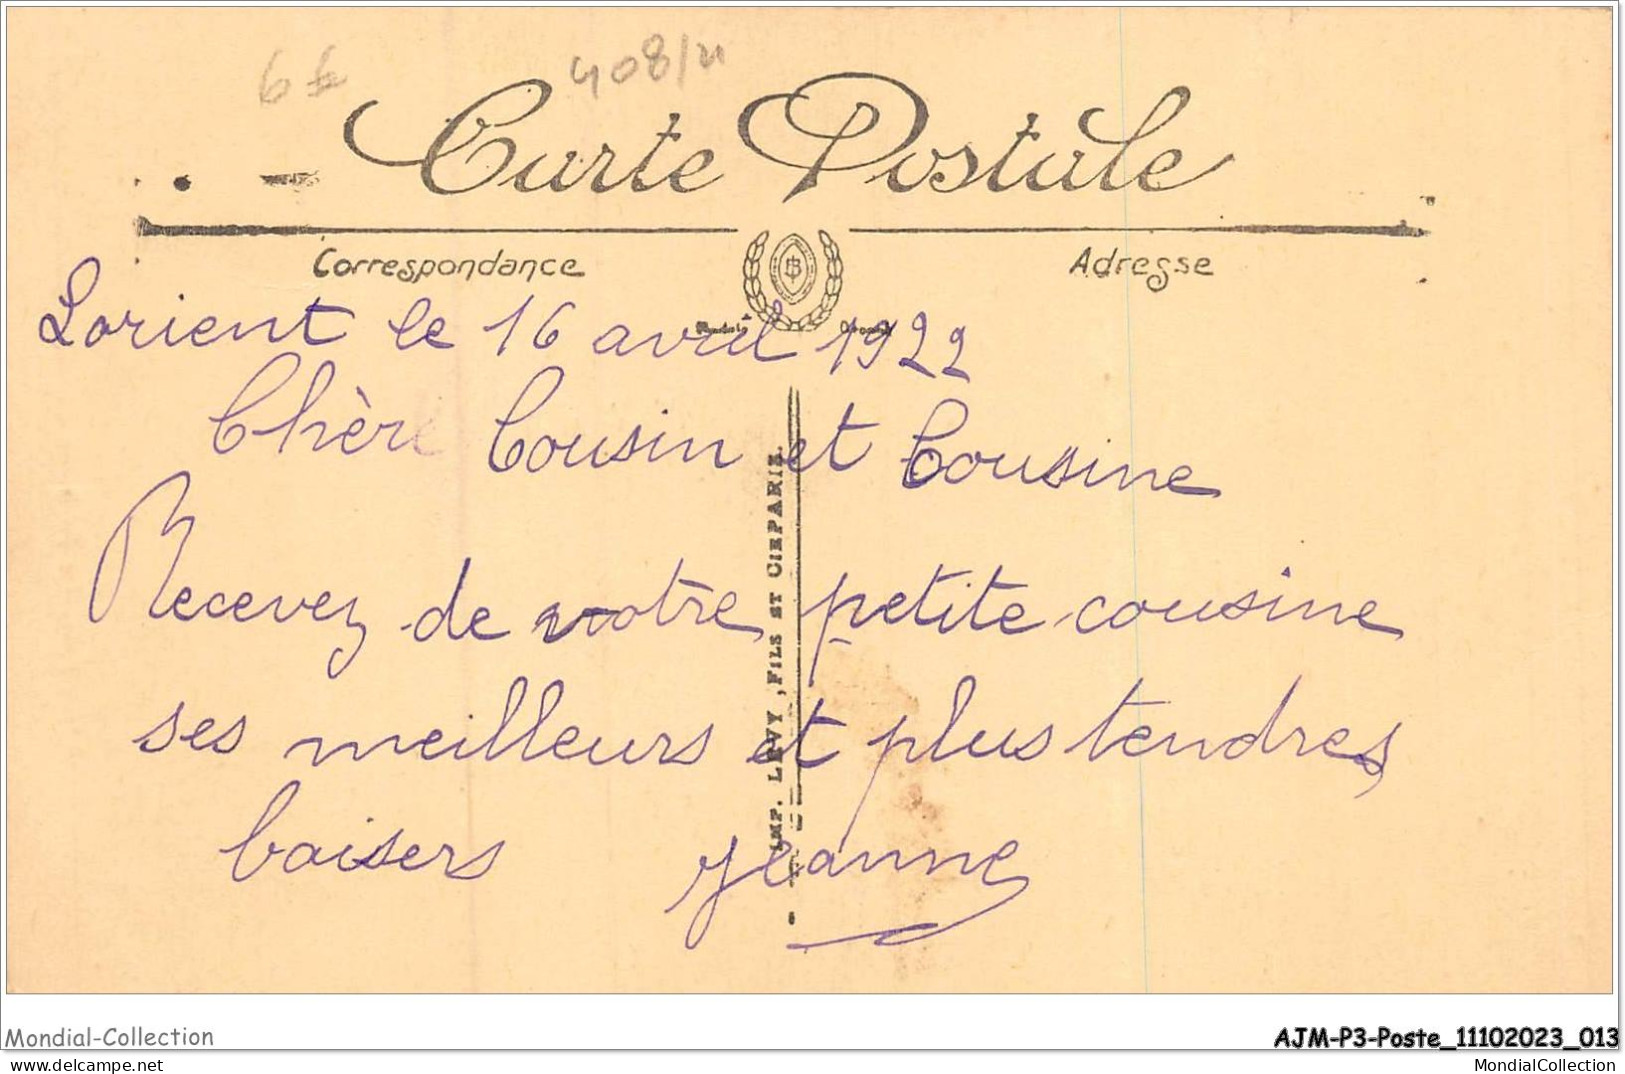 6f 408/21
Carte Postale
Correspondance Adresse
B
Modèle Déposé
Lorient le 16 avril 1922
Chère Cousin et Cousine
Recevez de votre petite cousine
ses meilleurs et plus tendres
baisers Jeanne
IMP. LEVY, FILS ET CIE PARIS.
Mondial-Collection AJM-P3-Poste_11102023_013
the-delcampe.net MondialCollection